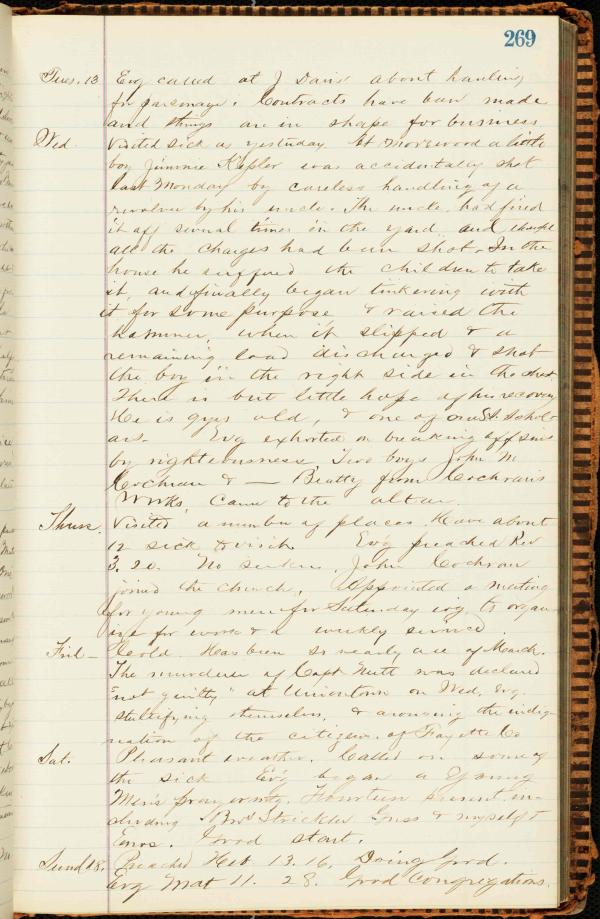 269
Tues. 13 Evg called at J Davis about hauling
for parsonage. Contracts have been made
and things are in shape for business
Wed. Visited sick as yesterday. At Morewood a little
boy Jimmie Kepler was accidentally shot
last Monday by careless handling of a
revolver by his uncle. The uncle had fired
it off several times in the yard and thought
all the charges had been shot. In the
house he suffered the children to take
it, and finally began tinkering with
it for some purpose & raised the
hammer, when it slipped & a
remaining load discharged & shot
the boy in the right side in the chest.
There is but little hope of his recovery
He is 9 yrs old, & one of our S.S. schol-
ars. Evg exhorted on breaking off sins
by righteousness Two boys John M
Cochran & — Beatty from Cochran's
Works, came to the altar.
Thurs. Visited a number of places. Have about
12 sick to visit. Evg preached Rev
3. 20. No seekers. John Cochran
joined the church. Appointed a meeting
for young men for Saturday evg to organ-
ize for work & a weekly service.
Frid — Cold. Has been so nearly all of March.
The murderer of Capt Nutt was declared
"not guilty" at Uniontown on Wed. Evg.
stultifying themselves, & arousing the indig-
nation of the citizens of Fayette Co
Sat. Pleasant weather. Called on some of
the sick Evg began a Young
Men's prayer mtg. Fourteen present in-
cluding Bros Strickler & myself &
Enos. Good start.
Sund 18. Preached Heb 13. 16. Doing Good.
Evg Mat 11. 28. Good Congregations.